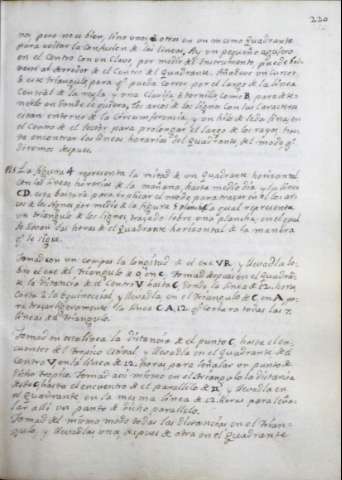 220
nos pero no es bien, sino unos otros en un mismo quadrante
para evitar la confusion de las lineas. Ay un pequeño agujero
en el centro con un clavo, por medio del Instrumento puede bol-
ver al derredor de el Centro del quadrante. Añadese un cursor,
o este triangulo para q.e pueda correr por el largo de la linea
Central de la regla, y una clavija o tornillo como B para de te-
nerlo en donde se quiera; los arcos de los signos con sus caracteres
estan entorno de la circumferencia, y un hilo de seda fina, en
el Centro de el Sector para prolongar el largo de los rayos, has
ta encontrar las lineas horarias del quadrante, del modo q.e
diremos despues.
La figura 4 representa la mitad de un quadrante horizontal
con las lineas horarias de la mañana, hasta medio dia, y la linea
CD, esta bastara para explicar el modo para trazar en el los ar-
cos de los signos por medio de la figura la qual representa
un triangulo de los signos trazado sobre una plancha, en el qual
se trazan las horas de el quadrante horizontal de la manera
q.e se sigue.
Tomad con un compas la longitud de el exe VR, y llevadla so-
bre el exe del Triangulo Tomad despues en el Quadran-
te la distancia de el Centro V hasta C donde la linea de 12. horas
corta a la equinoccial, y llevadla, en el Triangulo de C en A pa-
ra trazar ligeramente la linea CA, 12. q.e cortara todas las 7.
lineas del Triangulo.
Tomad en esta linea la distancia de el punto C hasta el en-
cuentro de el tropico y llevadla en el quadrante del
Centro V, en la linea de 12. horas para señalar un punto de
dicho tropico. Tomad assi mismo en el triangulo la distancia
de C hasta el encuentro de el parallelo de y llevadla en
el quadrante en la misma linea de 12. horas para seña-
lar alli un punto de dicho parallelo.
Tomad del mismo modo todas las distancias en el trian-
gulo, y llevadlas una despues de otra en el quadrante